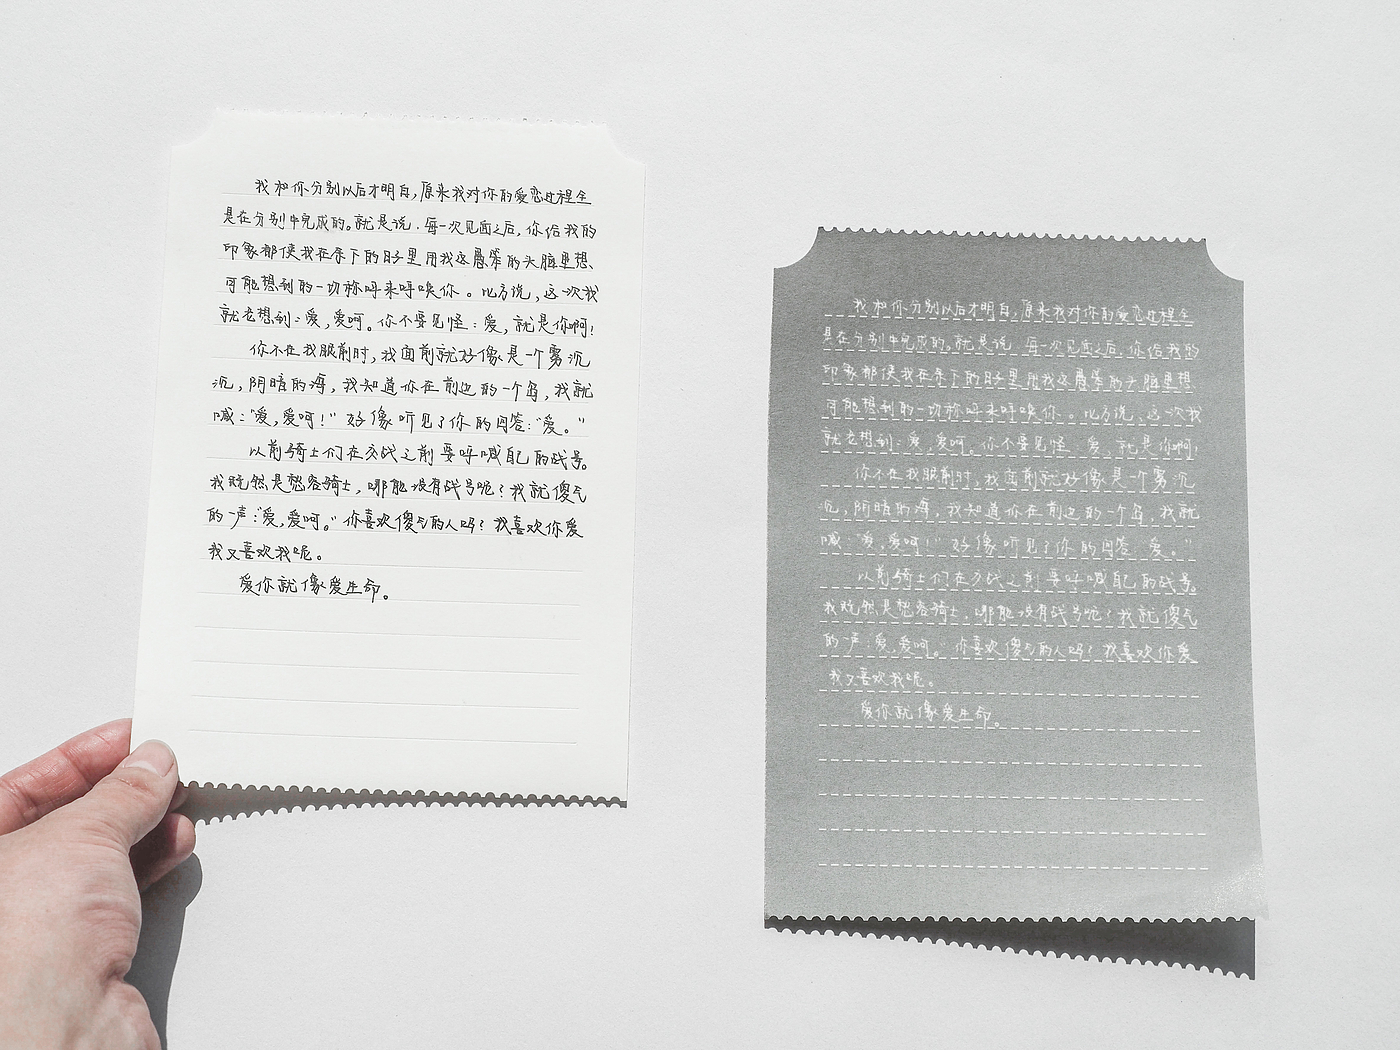 我和你分别以后才明白,原来我对你的爱恋过程全
是在分别中完成的。就是说,每一次见面之后,你给我的
印象都使我在余下的日子里用我这愚笨的头脑里想、
可能想到的一切称呼来呼唤你。比方说,这一次我
就老想到:爱,爱呵。你不要见怪:爱,就是你啊!
你不在我眼前时,我面前就好像是一个雾沉
沉,阴暗的海,我知道你在前边的一个岛,我就
喊:“爱,爱呵!”好像听见了你的回答:“爱。”
以前骑士们在交战之前要呼喊自己的战号。
我既然是愁容骑士,哪能没有战号呢?我就傻气
的一声:“爱,爱呵。”你喜欢傻气的人吗?我喜欢你爱
我又喜欢我呢。
爱你就像爱生命。
我和你分别以后才明白,原来我对你的爱恋过程全
是在分别中完成的。就是说,每一次见面之后,你给我的
印象都使我在余下的日子里用我这愚笨的头脑里想、
可能想到的一切称呼来呼唤你。比方说,这一次我
就老想到:爱,爱呵。你不要见怪:爱,就是你啊!
你不在我眼前时,我面前就好像是一个雾沉
沉,阴暗的海,我知道你在前边的一个岛,我就
喊:“爱,爱呵!”好像听见了你的回答:“爱。”
以前骑士们在交战之前要呼喊自己的战号。
我既然是愁容骑士,哪能没有战号呢?我就傻气
的一声:“爱,爱呵。”你喜欢傻气的人吗?我喜欢你爱
我又喜欢我呢。
爱你就像爱生命。